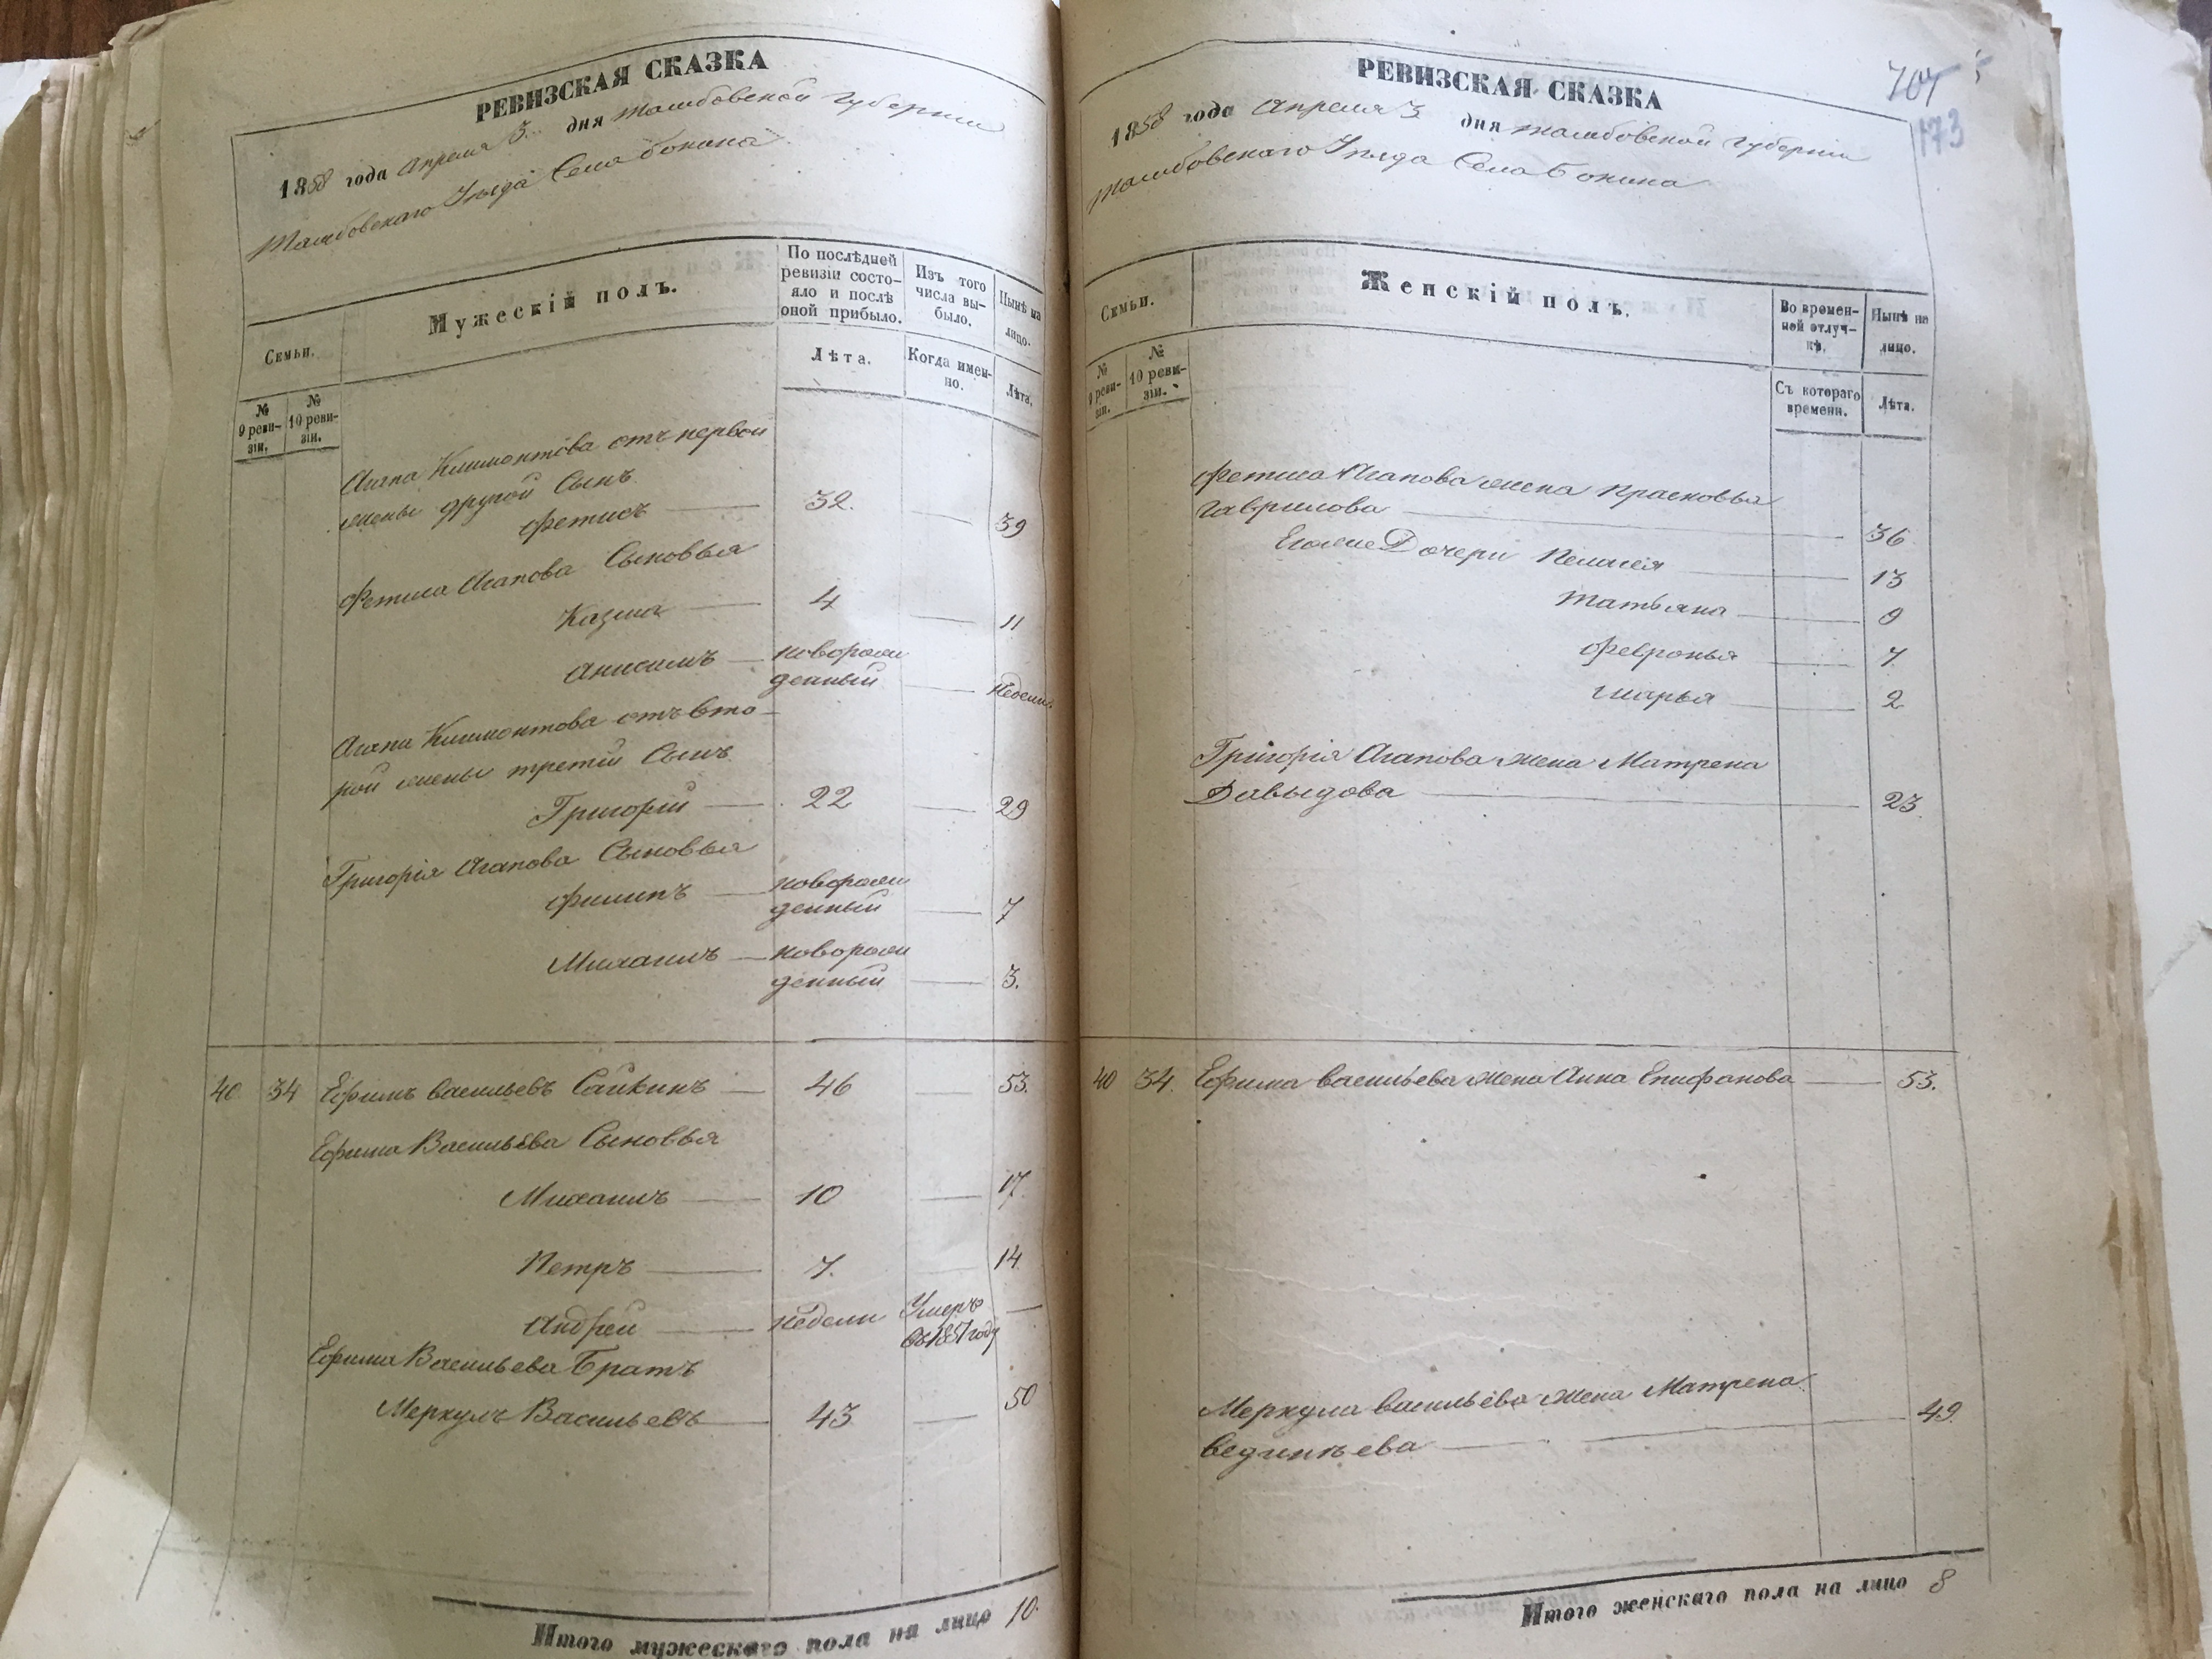 РЕВИЗСКАЯ СКАЗКА
1858 года Апреля 3. дня Тамбовской Губернии
Тамбовскаго Уѣзда Села Бокина
Семьи.
Мужескій полъ.
По послѣдней ревизіи состояло и послѣ оной прибыло.
Изъ того числа выбыло.
Нынѣ на лицо.
№ 9 ревизіи.
№ 10 ревизіи.
Лѣта.
Когда именно.
Лѣта.
Агапа Климонтова отъ первой
жены другой Сынъ
Фетисъ 32. 39
Фетиса Агапова Сыновья
Казма 4 11
Анисимъ новорожденный недели
Агапа Климонтова отъ второй жены третий Сынъ
Григорий 22 29
Григорія Агапова Сыновья
Филипъ новорожденный 7
Михаилъ новорожденный 3.
40 34 Ефимъ Васильевъ Сайкинъ 46 53.
Ефима Васильева Сыновья
Михаилъ 10 17.
Петръ 7. 14
Андрей недели Умеръ въ 1851 году
Ефима Васильева Братъ
Меркулъ Васильевъ 43 50
Итого мужескаго пола на лицо 10.
РЕВИЗСКАЯ СКАЗКА
173
1858 года Апреля 3 дня Тамбовской Губерніи
Тамбовскаго Уѣзда Села Бокина
Семьи.
Женскій полъ.
Во временной отлучкѣ.
Нынѣ на лицо.
№ 9 ревизіи.
№ 10 ревизіи.
Съ котораго времени.
Лѣта.
Фетиса Агапова жена Прасковья
Гаврилова 36
Его же Дочери Пелагея 13
Татьяна 9
Февронья 7.
Марья 2
Григорія Агапова жена Матрена
Давыдова 23.
40 34. Ефима Васильева жена Анна Епифанова 53.
Меркула Васильева жена Матрена 49.
Итого женскаго пола на лицо 8